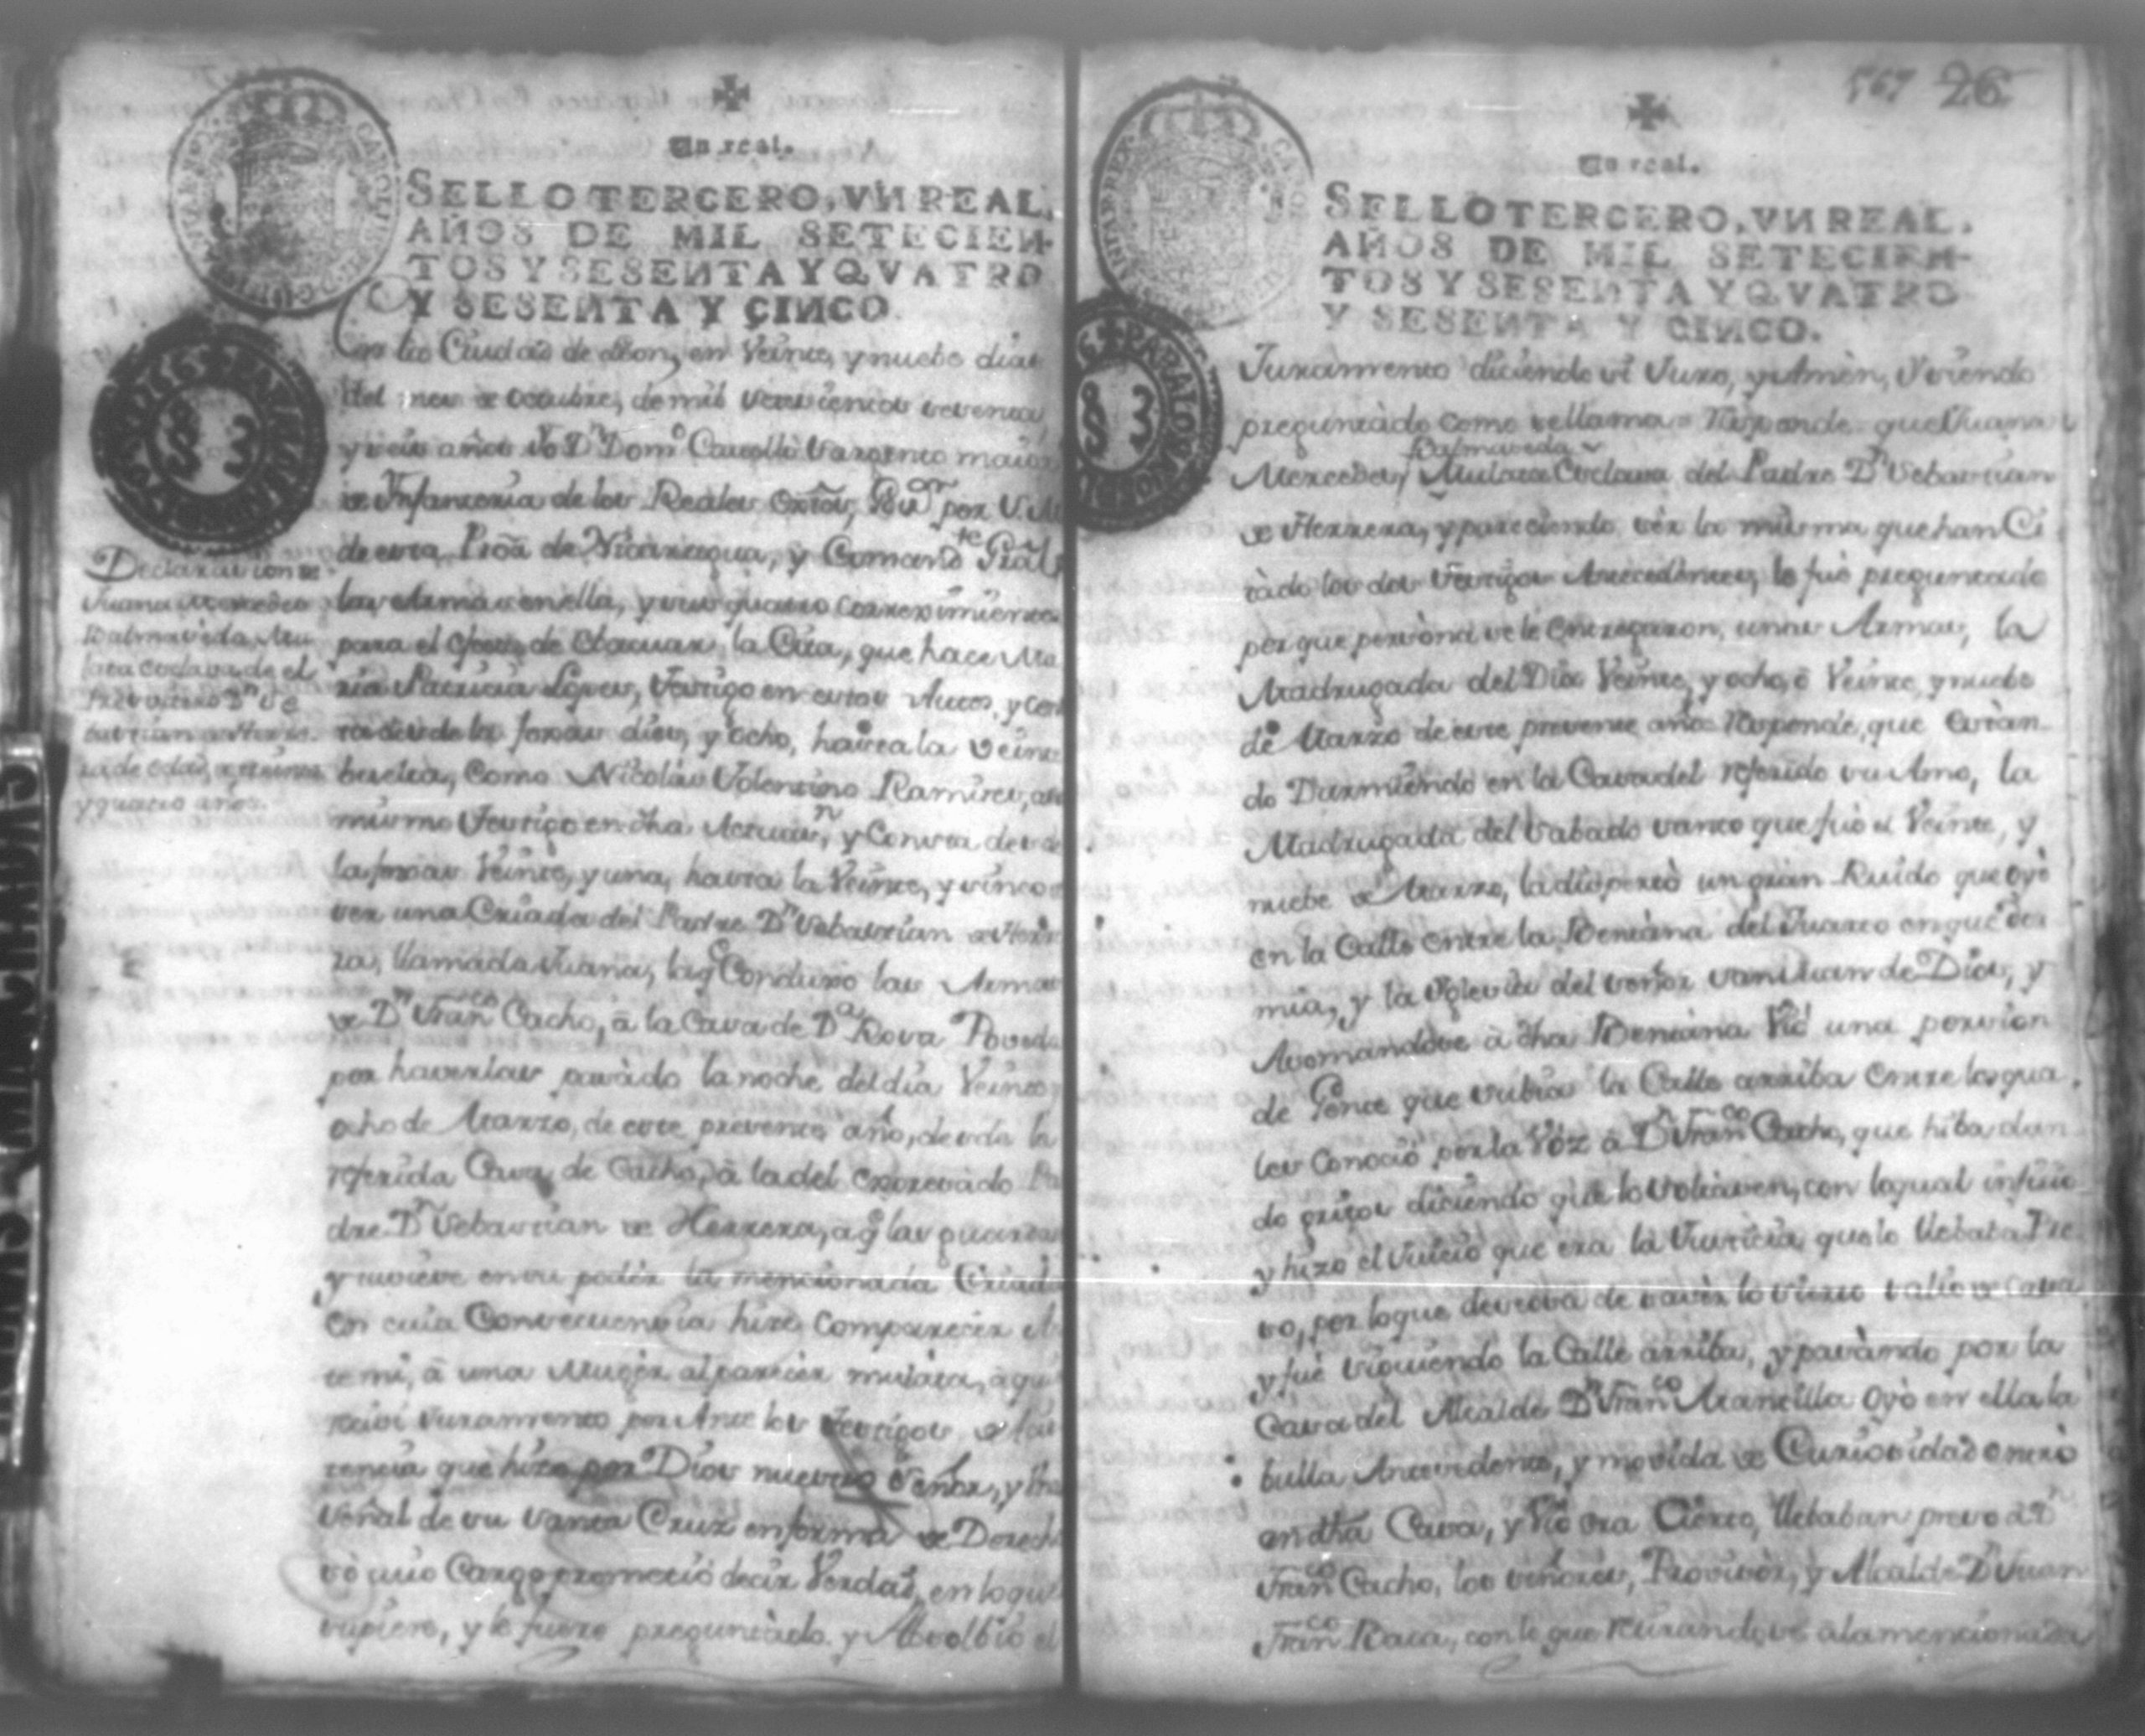 Un real.
SELLO TERCERO, VN REAL,
AÑOS DE MIL SETECIEN-
TOS Y SESENTA Y QVATRO
Y SESENTA Y CINCO.
En la Ciudad de Leon, en Veinte, y nuebe dias
del mes de Octubre, de mil setecientos sesenta
y seis años Yo Dn. Domo. Cavello Sargento maior
de Infanteria de los Reales Extos, Govor por S.M.
de esta Proã de Nicaragua, y Comandte Grãl
las Armas en ella, y sus quatro correximientos
para el efecto de Evacuar, la Cita, que hace Ma
ria Patricia Lopes, testigo en estos Autos, y cons
ta desde la foxas dies, y ocho, hasta la Veinte
buelta, como Nicolas Valentino Ramires, asi
mismo testigo en dha Actuasn, y Consta desde
la foxas Veinte, y una, hasta la Veinte, y sinco
ser una Criada del Padre Dn Sebastian de Herre
ra, llamada Juana, la qe Conduxo las Armas
de Dn Franco Cacho, à la Casa de Da Rosa Poveda
por haverlas pasàdo la noche del dia Veinte y
ocho de Marzo, de este presente año, desde la
referida Casa, de Cacho, à la del expresàdo Pa
dre Dn Sebastian de Herrera, a qe las guardase
y tuviese en su podèr la mencionada Criada
En cuia Consecuensia hize Comparecèr an
te mi, à una Mugèr al parecèr mulàta, à qn
recivi Juramento por Ante los testigos de Asis
tencia que hizo por Dios nuestro Señor, y una
Señal de su Santa Cruz en forma de Derech
sò cuio Cargo prometiò decir Verdad, en lo que
supiere, y le fuere preguntàdo y Absolbiò el
Declarasion de
Juana Mercedes
Balmaseda, Mu
lata esclava de el
Presvitero Dn Se
bastian de Herre-
ra de edad, de treinta
y quatro años.
567 26
Un real.
SELLO TERCERO, VN REAL,
AÑOS DE MIL SETECIEN-
TOS Y SESENTA Y QVATRO
Y SESENTA Y CINCO.
Juramento diciendo si Juro, y Amèn, Siendo
preguntàdo como se llama = Responde que Juana
Balmaseda
Mercedes, Mulata Esclava del Padre Dn Sebastian
de Herrera, y pareciendo sèr la misma que han Ci
tàdo los dos testigos Antecedentes, le fuè preguntado
por que persona se le entregaron, unas Armas, la
Madrugada del Dia Veinte, y ocho, ò Veinte, y nuebe
de Marzo de este presente año = Responde, que Estàn-
do Durmiendo en la Casa del referido su Amo, la
Madrugada del Sabado Santo que fuè el Veinte, y
nuebe de Marzo, la dispertò un gràn Ruido que oyò
en la Calle entre la Bentàna del Quarto en que dor
mia, y la Yglesia del Señor San Juan de Dios, y
Asomandose à dha Bentàna Viò una porsion
de Gente que subia la Calle arriba entre los qua
les Conociò por la Vòz à Dn Franco Cacho, que hiba dan
do gritos diciendo que lo soltasen, con lo qual infirio
y hizo el Juicio que era la Justicia que lo llebaba Pre
so, por lo que deseosa de savèr lo Sierto salio de Casa
y fuè siguiendo la Calle arriba, y pasàndo por la
Casa del Alcalde Dn Franco Mancilla Oyò en ella la
bulla Antesedente, y mobida de Curiosidad entrò
en dha Casa, y Viò era Cierto, llebaban preso a Dn
Franco Cacho, los señores, Provisòr, y Alcalde Dn Juan
Franco Raca, con lo que retirandose a la mencionada